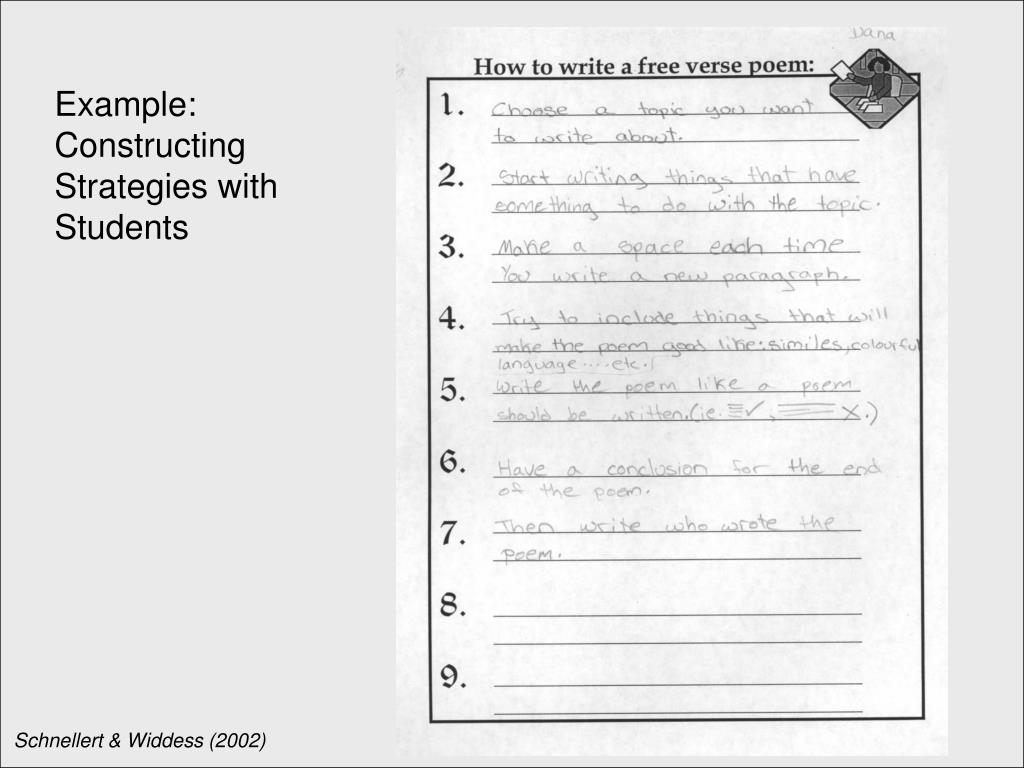 Example:
Constructing
Strategies with
Students
Dana
How to write a free verse poem:
1. Choose a topic you want
to write about.
2. Start writing things that have
something to do with the topic.
3. Make a space each time
You write a new paragraph.
4. Try to include things that will
make the poem good like:similes,colourful
language....etc.!
5. Write the poem like a poem
should be written.(ie. ✓, X.)
6. Have a conclusion for the end
of the poem.
7. Then write who wrote the
poem.
8.
9.
Schnellert & Widdess (2002)